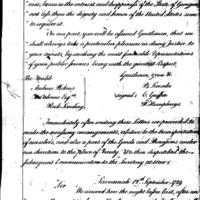 ease, honor as the interest and happiness of the State of Georgia
and liftd the dignity and honor of the United States seem
to require it.
On our part, you will be assured Gentlemen, that we
shall always take a particular pleasure in doing Justice to
your merits, by making the most favorable Representations
of your public favours being with the greatest Respect,
Gentlemen, your &c
The Honble
B. Lincoln
Andrew Pickens
signed C. Griffin
Osborne Esq
D. Humphreys
Rock Landing
Immediately after ending these Letters we proceeded
to make the necessary arrangements, relative to the transportation
of ourselves, and also a part of the Goods and Provisions under
our direction to the Place of Treaty. We then dispatched the
subsequent Communication to the hunting as now
Savannah 12th September 1789
Sir
We arrived here the night before last, after an